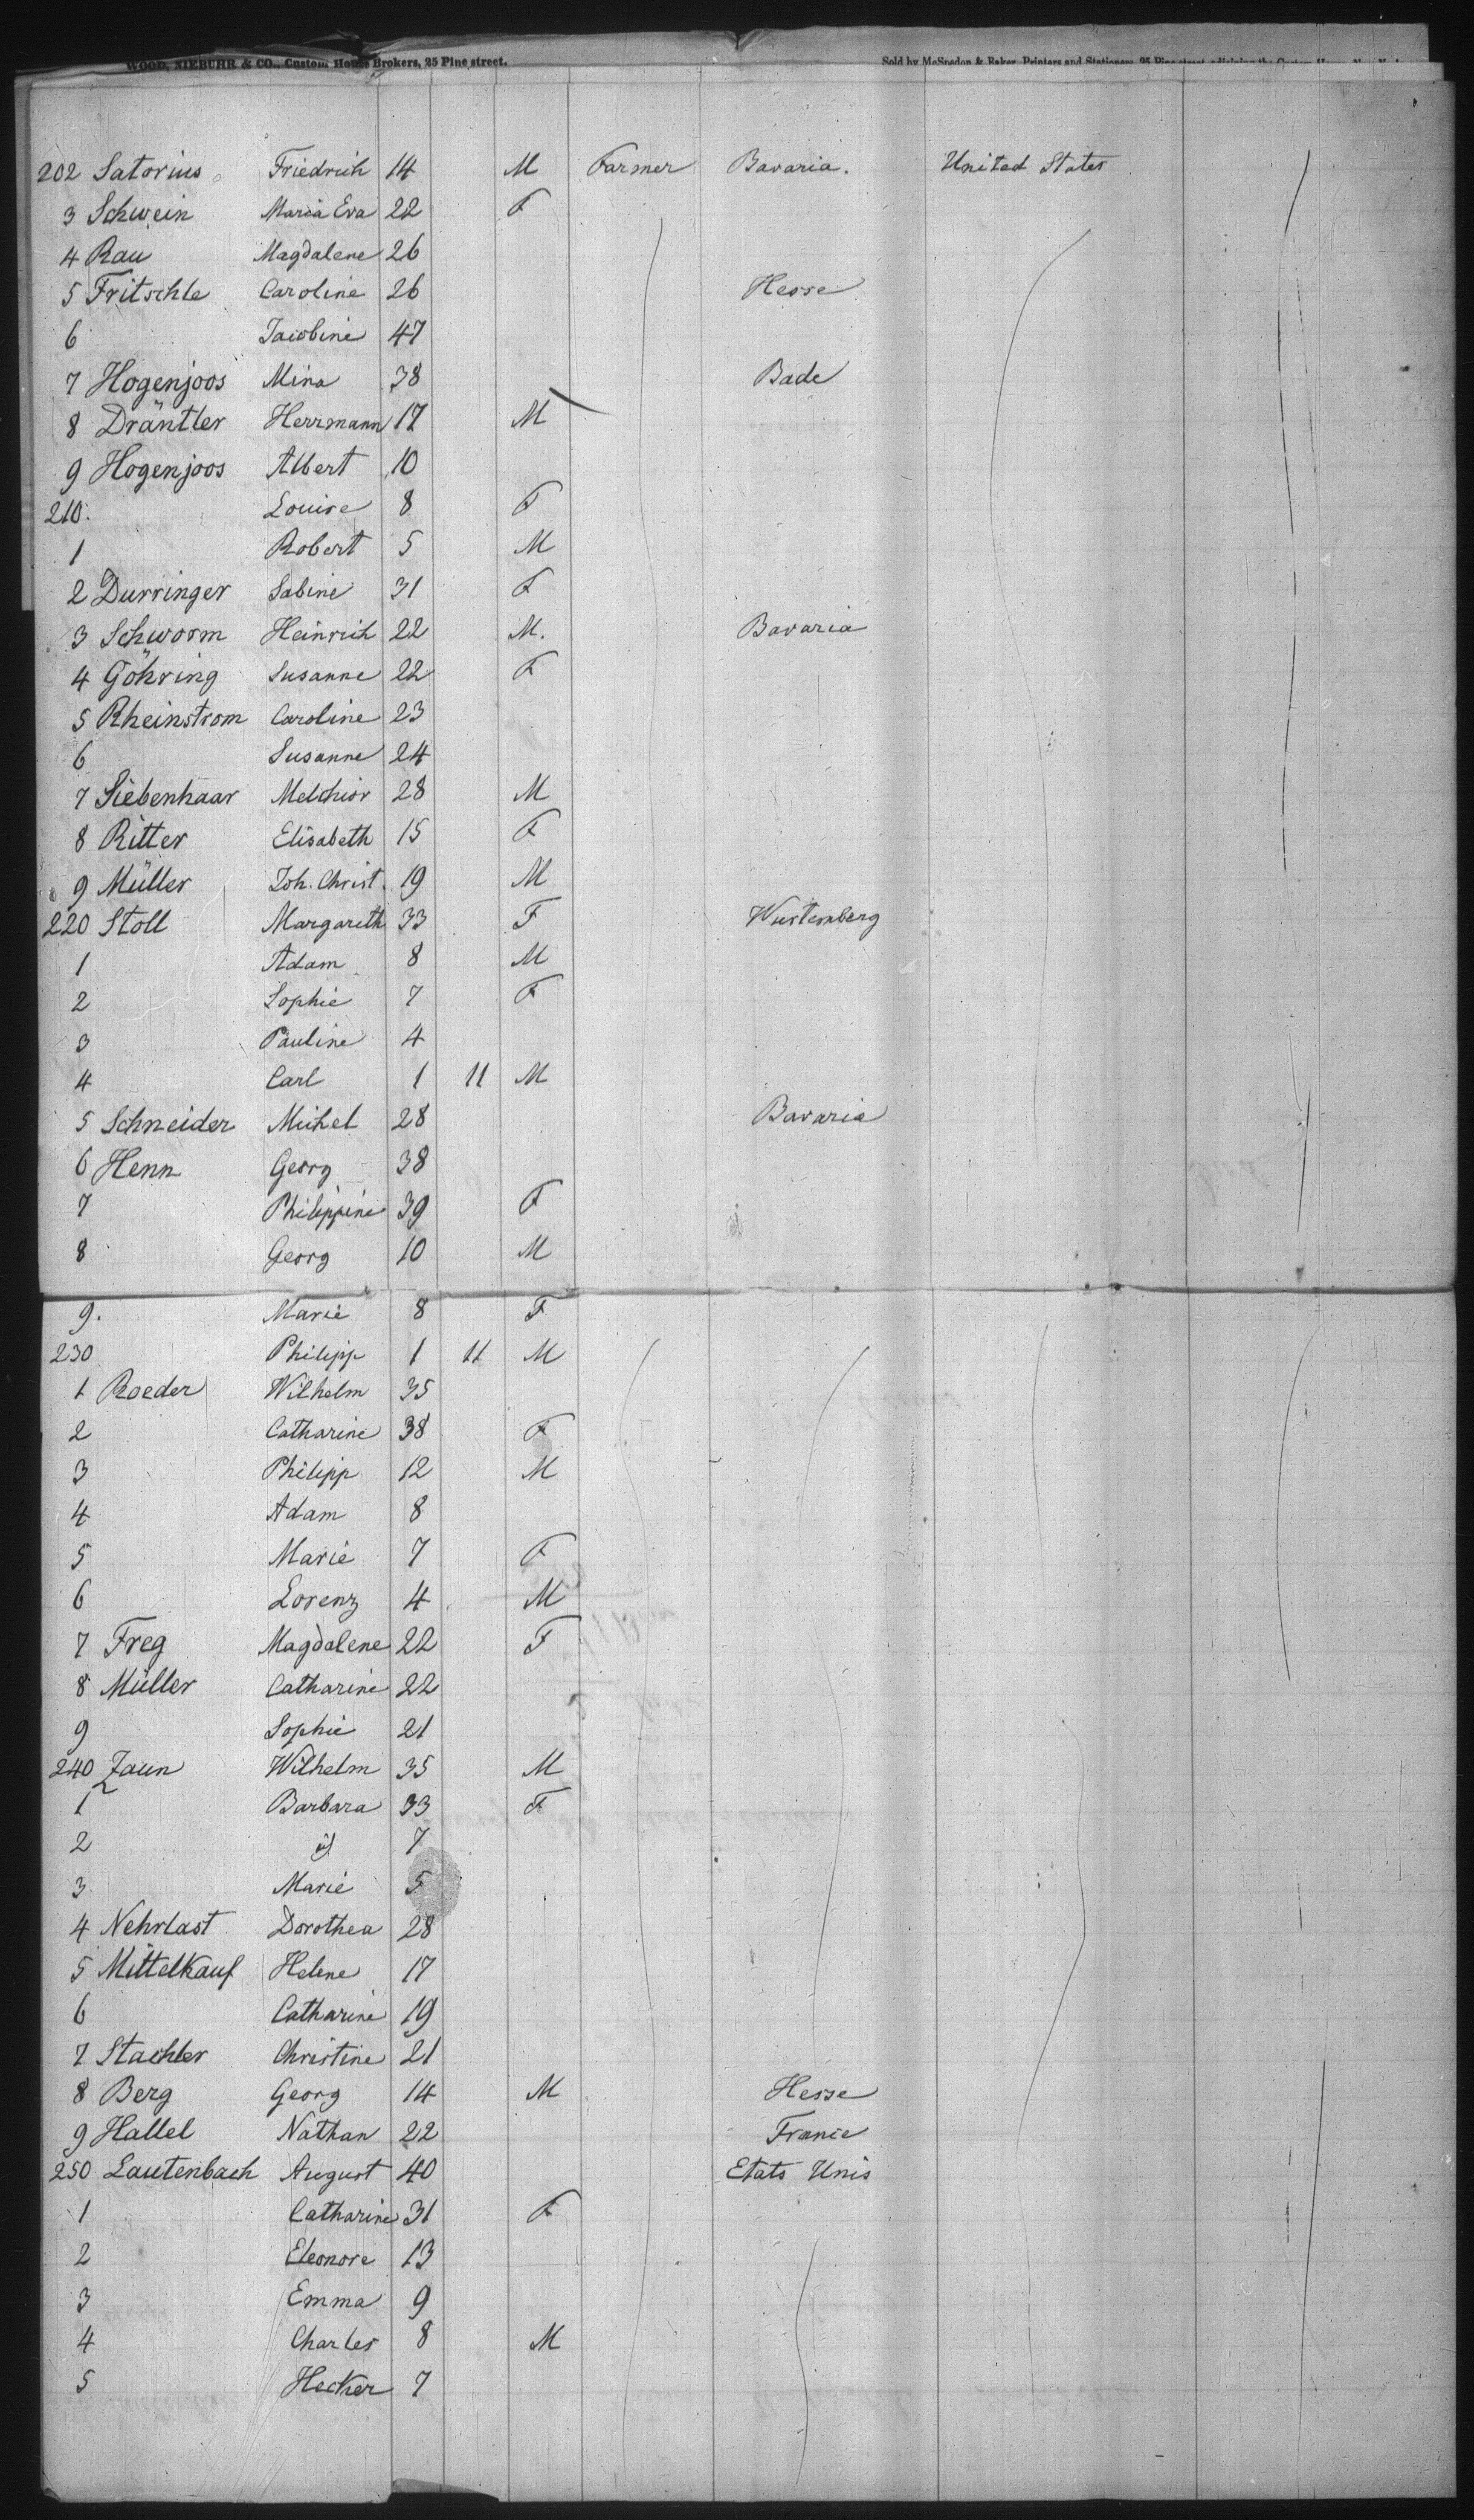 WOOD, NIEBUHR & CO., Custom House Brokers, 25 Pine street.
Sold by McSpedon & Baker, Printers and Stationers, 25 Pine street
202 Satorius Friedrich 14 M Farmer Bavaria. United States
3 Schwein Maria Eva 22 F
4 Rau Magdalene 26
5 Fritschle Caroline 26 Hesse
6 Jacobine 47
7 Hogenjoos Mina 38 Bade
8 Dräntler Herrmann 17 M
9 Hogenjoos Albert 10
210. Louise 8 F
1 Robert 5 M
2 Durringer Sabine 31 F
3 Schworm Heinrich 22 M. Bavaria
4 Göhring Susanne 22 F
5 Rheinstrom Caroline 23
6 Susanne 24
7 Siebenhaar Melchior 28 M
8 Ritter Elisabeth 15 F
9 Müller Joh. Christ. 19 M
220 Stoll Margareth 33 F Wurtemberg
1 Adam 8 M
2 Sophie 7 F
3 Pauline 4
4 Carl 1 11 M
5 Schneider Michel 28 Bavaria
6 Henn Georg 38
7 Philippine 39 F
8 Georg 10 M
9. Marie 8 F
230 Philipp 1 11 M
1 Roeder Wilhelm 35
2 Catharine 38 F
3 Philipp 12 M
4 Adam 8
5 Marie 7 F
6 Lorenz 4 M
7 Freg Magdalene 22 F
8 Müller Catharine 22
9 Sophie 21
240 Zaun Wilhelm 35 M
1 Barbara 33 F
2 7
3 Marie 5
4 Nehrlast Dorothea 28
5 Mittelkauf Helene 17
6 Catharine 19
7 Stachler Christine 21
8 Berg Georg 14 M Hesse
9 Hallel Nathan 22 France
250 Lautenbach August 40 Etats Unis
1 Catharine 31 F
2 Eleonore 13
3 Emma 9
4 Charles 8 M
5 Hecker 7